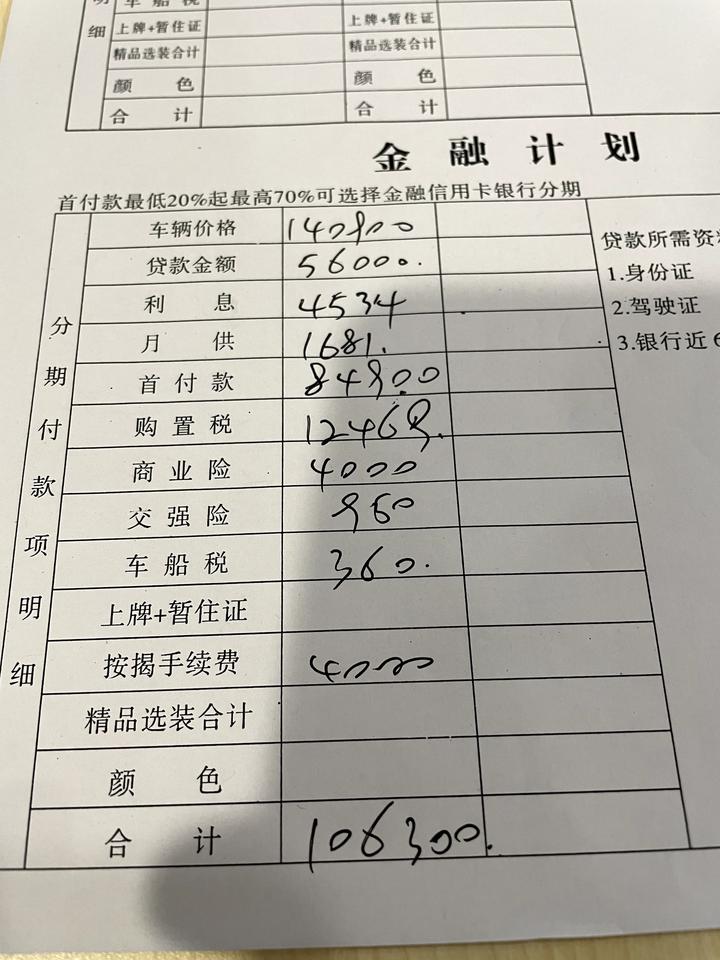 明 车船税
细 上牌+暂住证 上牌+暂住证
精品选装合计 精品选装合计
颜色 颜色
合计 合计
金融计划
首付款最低20%起最高70%可选择金融信用卡银行分期
分期付款项明细
车辆价格 140900
贷款金额 56000.
利息 4534
月供 1681.
首付款 84900
购置税 12469.
商业险 4000
交强险 950
车船税 360.
上牌+暂住证
按揭手续费 4000
精品选装合计
颜色
合计 106300.
贷款所需资料
1.身份证
2.驾驶证
3.银行近6